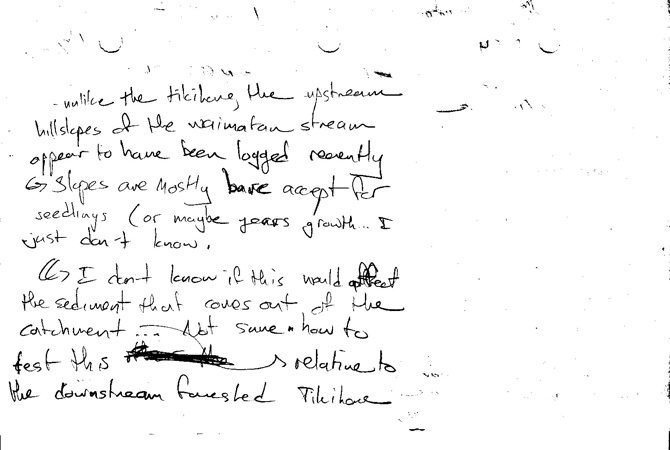 - unlike the tikihore, the upstream
hillslopes of the waimatau stream
appear to have been logged recently
↳ Slopes are mostly bare accept for
seedlings (or maybe years growth... I
just don't know.
↳ I don't know if this would affect
the sediment that comes out of the
catchment.... Not sure how to
test this relative to
the downstream forested Tikihore